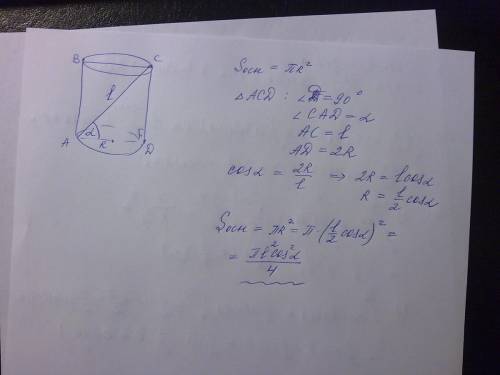 B C
l
A α R D
Sосн = πR²
△ACD : ∠D = 90°
∠CAD = α
AC = l
AD = 2R
cosα = 2R/l ⇒ 2R = l cosα
R = l/2 cosα
Sосн = πR² = π · (l/2 cosα)² =
= πl²cos²α/4